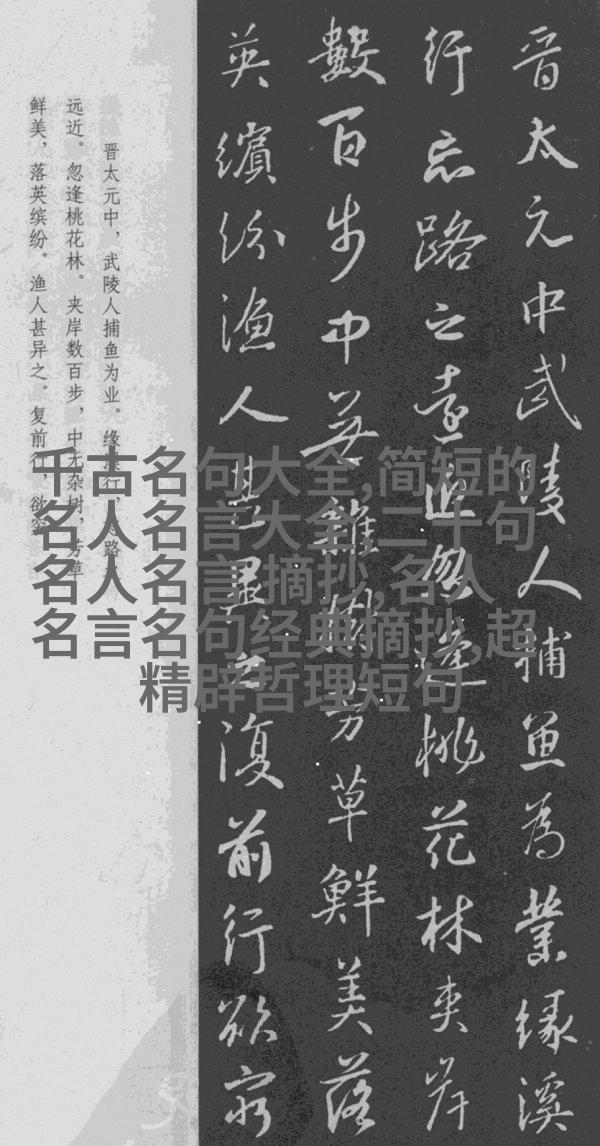 晋太元中武陵人捕魚為業緣溪
行忘路之遠近忽逢桃花林夾岸
數百步中無雜樹芳草鮮美落
英繽紛漁人甚異之復前行欲窮
晋太元中，武陵人捕鱼为业。缘溪行，忘路
远近。忽逢桃花林。夹岸数百步，中无杂树，芳草
鲜美，落英缤纷。渔人甚异之。复前行，欲穷
千古名句大全,简短的
名人名言大全二十句
名人名言,摘抄,名人
名言名句经典摘抄,超
精辟哲理短句